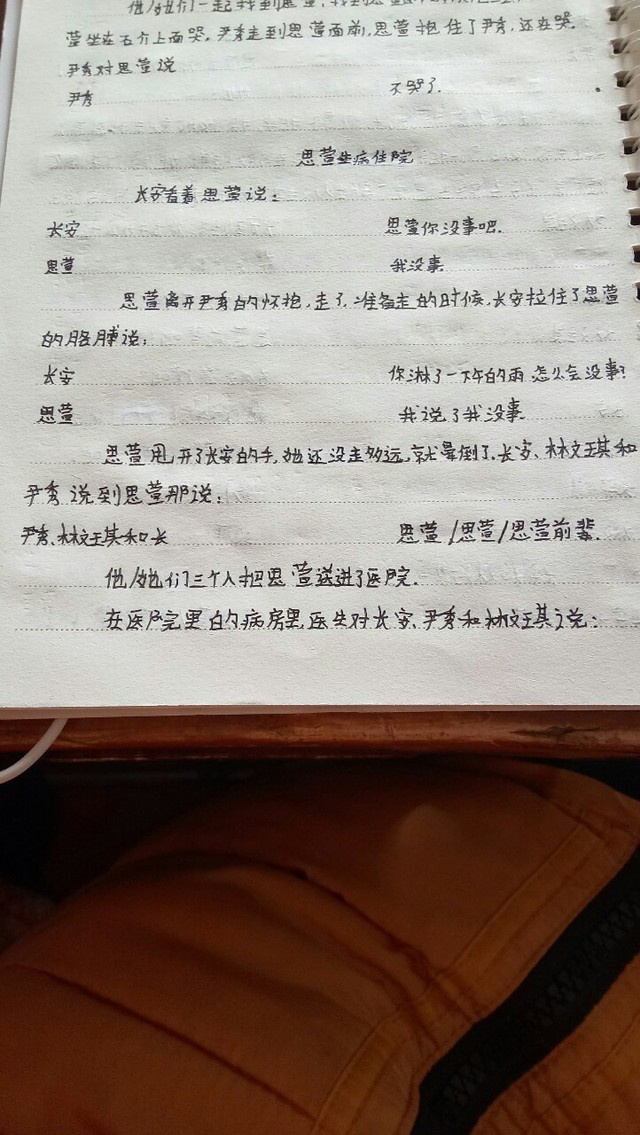 他/她们一起找到思萱,找到思萱
萱坐在石介上面哭,尹秀走到思萱面前,思萱抱住了尹秀,还在哭.
尹秀对思萱说
尹秀 不哭了.
思萱生病住院
长安看着思萱说:
长安 思萱你没事吧.
思萱 我没事.
思萱离开尹秀的怀抱,走了,准备走的时候,长安拉住了思萱
的胳膊说:
长安 你淋了一下午的雨,怎么会没事?
思萱 我说了我没事.
思萱甩开了长安的手,她还没走多远,就晕倒了.长安、林文琪和
尹秀说到思萱那说:
尹秀、林文琪和长 思萱/思萱/思萱前辈.
他/她们三个人把思萱送进了医院.
在医院里的病房里,医生对长安、尹秀和林文琪说: